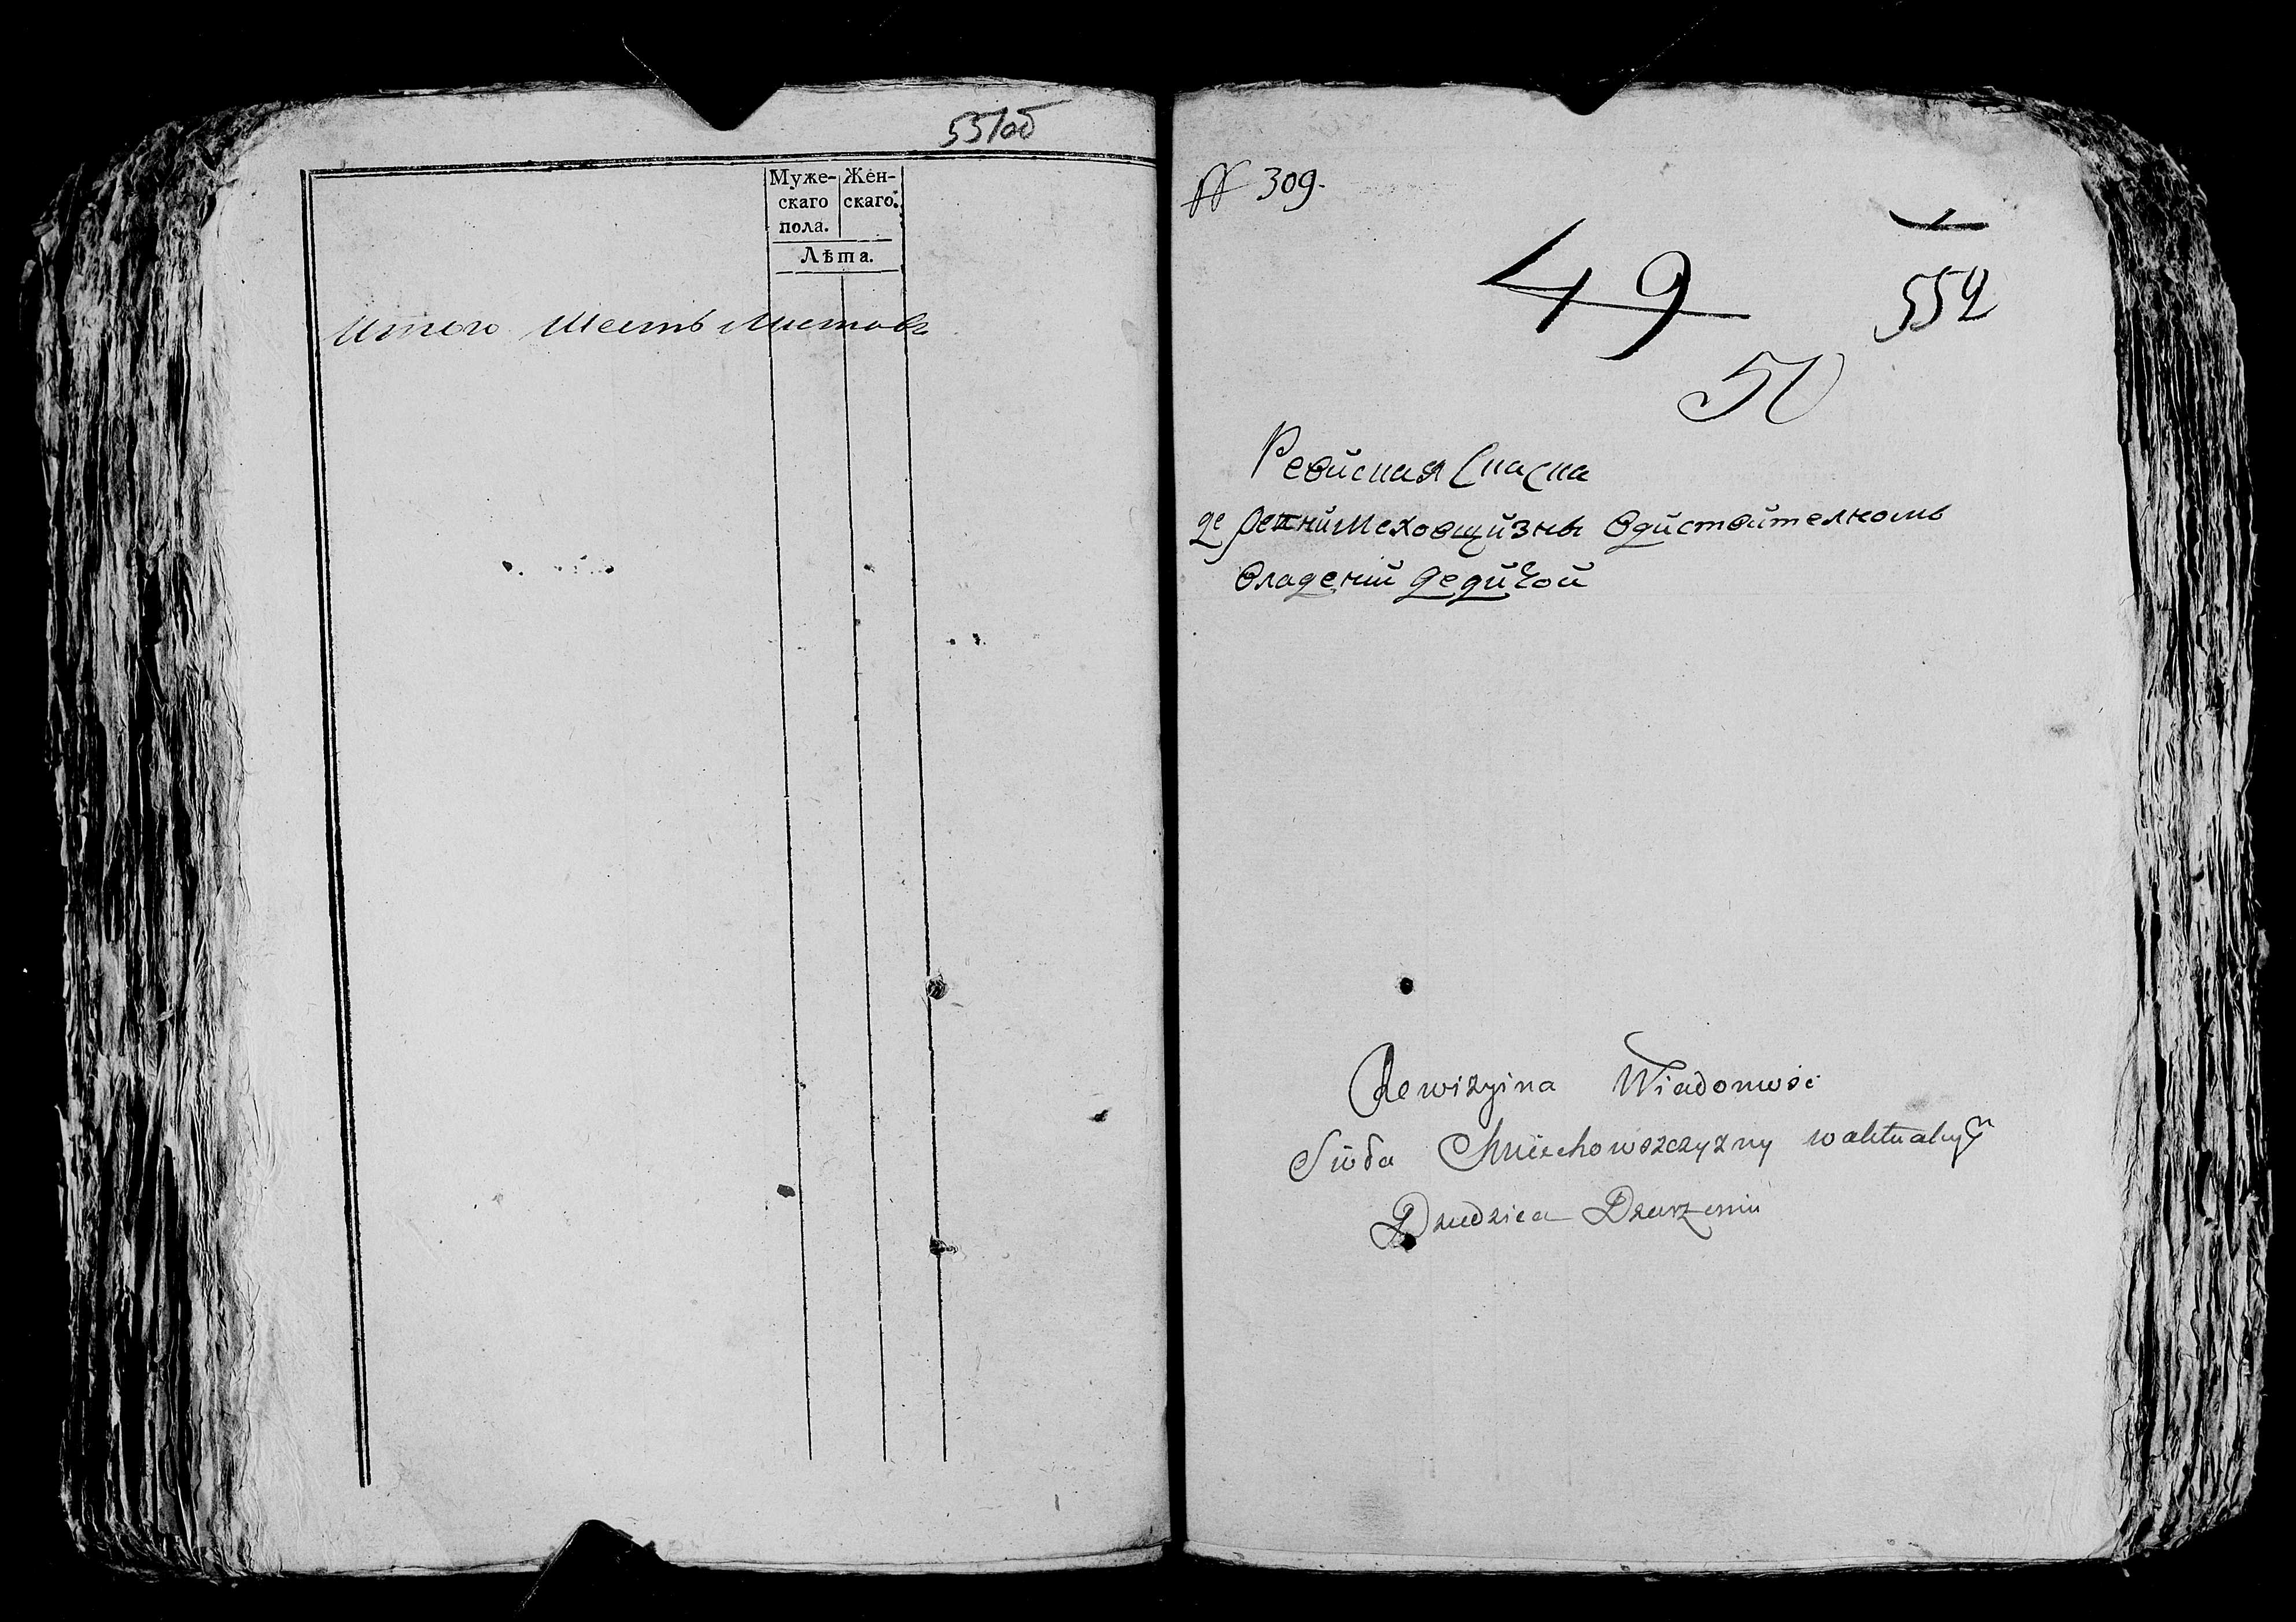 551об
Муже- Жен-
скаго скаго.
пола.
Лѣта.
Итого Шесть Листовъ
№ 309.
49
552
50
Ревиская Скаска
деревни Меховщизны вдиствителномъ
владении Дедичой
Rewizyina Wiadomość
Sioła Miechowszczyzny w aktualnym
Dziedzica Dzierżeniu